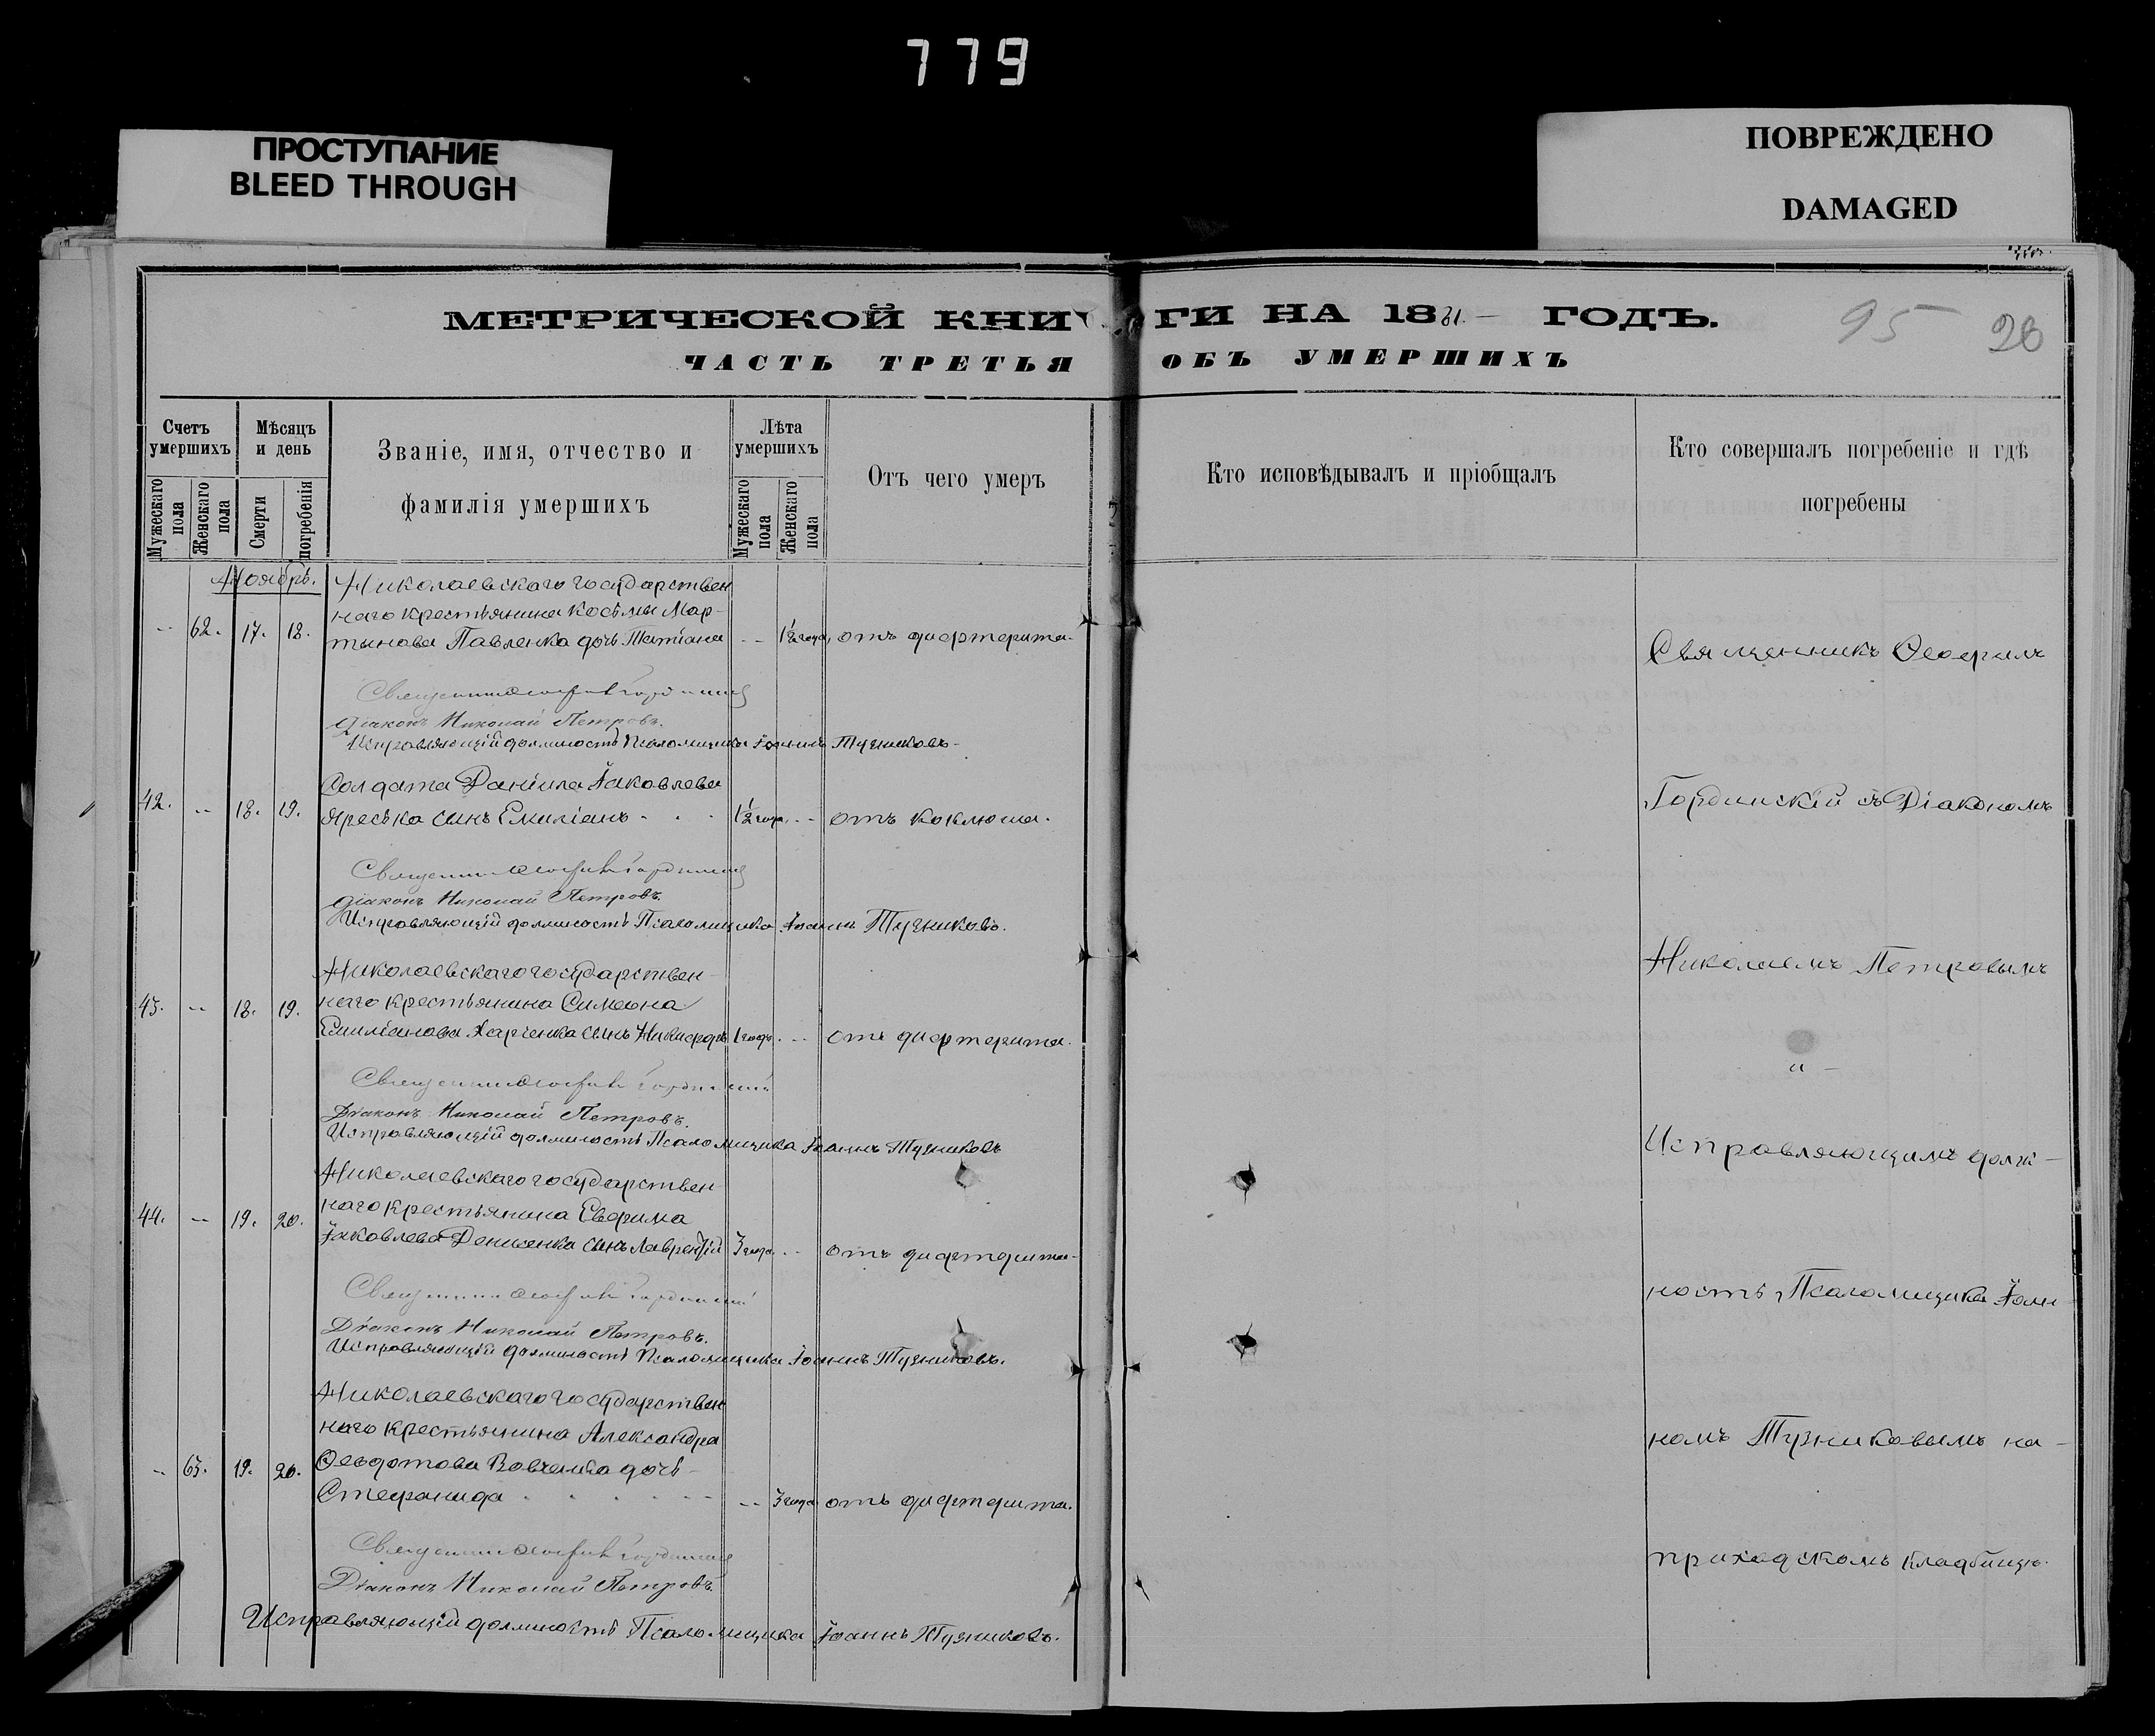 779
ПРОСТУПАНИЕ
BLEED THROUGH
ПОВРЕЖДЕНО
DAMAGED
МЕТРИЧЕСКОЙ КНИГИ НА 1881 ГОДЪ.
95 26
ЧАСТЬ ТРЕТЬЯ ОБЪ УМЕРШИХЪ
Счетъ умершихъ
Мужескаго пола
Женскаго пола
Мѣсяцъ и день
Смерти
погребенія
Званіе, имя, отчество и
фамилія умершихъ
Лѣта умершихъ
Мужескаго пола
Женскаго пола
Отъ чего умеръ
Кто исповѣдывалъ и пріобщалъ
Кто совершалъ погребеніе и гдѣ
погребены
Ноябрь.
Николаевскаго государствен
наго крестьянина Косьмы Мар-
-- 62. 17. 18. тынова Павленка дочь Татіана -- 1½ года, отъ дифтерита.
Священникъ Гординскій
Діаконъ Николай Петровъ.
Исправляющій должность Псаломщика Іоаннъ Тузниковъ.
Солдата Даніила Іаковлева
42. -- 18. 19. Яреська сынъ Емиліанъ 1½ года. -- отъ коклюша.
Священникъ Гординскій
Діаконъ Николай Петровъ.
Исправляющій должность Псаломщика Іоаннъ Тузниковъ.
Николаевскаго государствен-
наго крестьянина Симеона
43. -- 18. 19. Емиліанова Харченка сынъ Никифоръ 1 годъ. -- отъ дифтерита.
Священникъ Гординскій
Діаконъ Николай Петровъ.
Исправляющій должность Псаломщика Іоаннъ Тузниковъ
Николаевскаго государствен-
наго крестьянина Евфима
44. -- 19. 20. Іаковлева Денисенка сынъ Лаврентій 3 года -- отъ дифтерита.
Священникъ Гординскій
Діаконъ Николай Петровъ.
Исправляющій должность Псаломщика Іоаннъ Тузниковъ.
Николаевскаго государствен
наго крестьянина Александра
-- 63. 19. 20. Ѳеодотова Вовченка дочь
Стефанида -- 3 года отъ дифтерита.
Священникъ Гординскій
Діаконъ Николай Петровъ
Исправляющій должность Псаломщика Іоаннъ Тузниковъ.
Священникъ Ѳеофилъ
Гординскій съ Діакономъ
Николаемъ Петровымъ
и
Исправляющимъ долж-
ность Псаломщика Іоан-
номъ Тузниковымъ на
приходскомъ кладбищѣ.